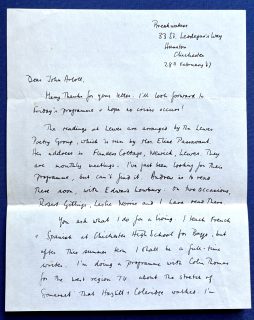 33 St. Leodegar's Way
Hunston
Chichester
28th February
Dear John
Many thanks for your letter. I'll look forward to
Friday's programme & hope no crisis occurs!
The readings at Lewes are arranged by the Lewes
Poetry Group, which is run by Mrs
Her address is Flinders Cottage, Lewes. They
are monthly meetings. I've just been looking for their
programme, but can't find it. Andrew is to read
there soon, with Edward Lowbury. On two occasions,
Robert Gittings, Leslie Norris and I have read there
You ask what I do for a living. I teach French
& Spanish at Chichester High School for Boys, but
after this summer term I shall be a full-time
writer. I'm doing a programme with Colin Thomas
for the west region T.V. about the stretch of
Somerset that Hazlitt & Coleridge walked in